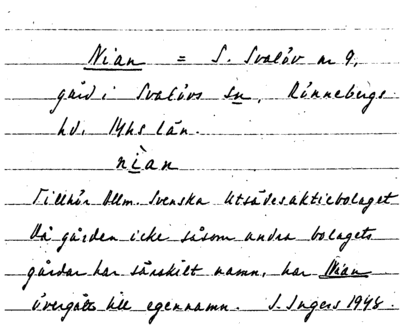 Nian = S. Svalöv nr 9,
gård i Svalövs sn, Rönnebergs
hd, Mhs län.
nìan
Tillhör Allm. Svenska Utsädesaktiebolaget
Då gården icke såsom andra bolagets
gårdar har särskilt namn, har Nian
övergått till egennamn. S. Ingers 1948.